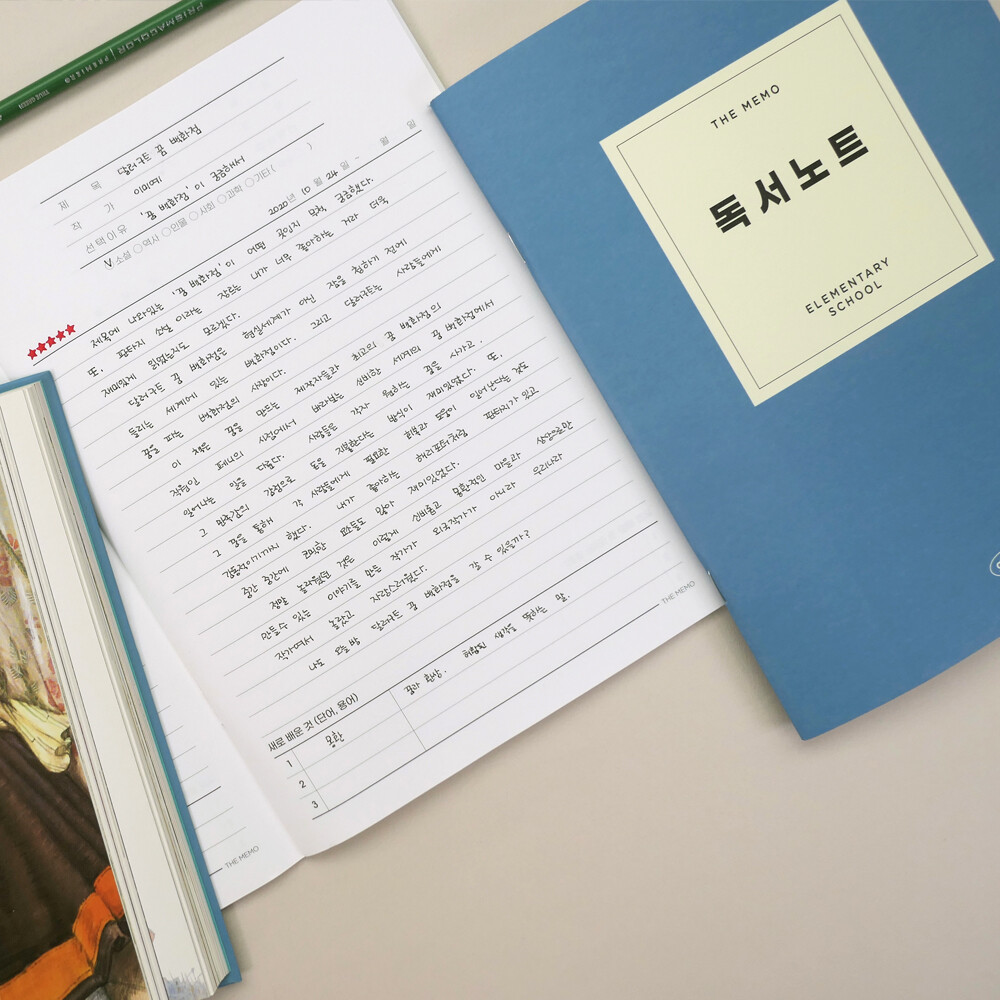 PRISMACOLOR PREMIER
제 목 달러구트 꿈 백화점
작 가 이미예
선택이유 '꿈 백화점'이 궁금해서
V 소설 ○역사 ○인물 ○사회 ○과학 ○기타 ( )
2020년 10월 24일 - 월 일
★★★★★
제목에 나와있는 '꿈 백화점'이 어떤 곳인지 무척 궁금했다.
또, 판타지 소설 이라는 장르는 내가 너무 좋아하는 거라 더욱
재미있게 읽었는지도 모르겠다.
달러구트 꿈 백화점은 현실세계가 아닌 잠을 청하기 전에
들리는 세계에 있는 백화점이다. 그리고 달러구트는 사람들에게
꿈을 파는 백화점의 사장이다.
이 책은 꿈을 만드는 제작자들과 최고의 꿈 백화점의
직원인 페니의 시점에서 바라보는 신비한 세계의 꿈 백화점에서
일어나는 일을 다룬다. 사람들은 각자 원하는 꿈을 사가고,
그 만족감의 감정으로 돈을 지불한다는 방식이 재미있었다. 또,
그 꿈을 통해 각 사람들에게 필요한 회복과 도움이 일어난다는 것도
감동적이기까지 했다. 내가 좋아하는 해리포터처럼 판타지가 있고
중간 중간에 코믹한 요소들도 많아 재미있었다.
정말 놀라웠던 것은 이렇게 신비롭고 몽환적인 마을과 상상으로만
만들수 있는 이야기를 만든 작가가 외국작가가 아니라 우리나라
작가여서 놀랐고 자랑스러웠다.
나도 오늘밤 달러구트 꿈 백화점을 갈 수 있을까?
새로 배운 것 (단어, 용어)
1 몽환 꿈과 환상. 허황된 생각을 뜻하는 말.
2
3
THE MEMO
THE MEMO
THE MEMO
독서노트
ELEMENTARY
SCHOOL